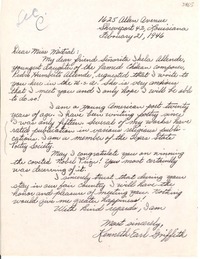 1625 Allen Avenue
Shreveport 43, Louisiana
February 21, 1946
Dear Miss Mistral:
My dear friend, Señorita Ikela Allende,
youngest daughter of the famed Chilean Composer,
Pedro Humberto Allende, requested that I write to
you while in the U.S.A., this is very
that I meet you and I only hope I will be able
to do so!
I am a young American poet, twenty
years of age. I have been writing poetry since
I was only fifteen. Several of my works have
rated publication in various religious publi-
cations. I am a member of the Texas State
Poetry Society.
May I congratulate you on winning
the coveted Nobel Prize! You most certainly
was deserving of it.
I sincerely trust that during your
stay in our fair Country I will have the
honor and pleasure of meeting you. Nothing
would give me greater happiness!
With kind regards, I am
Most sincerely,
Kenneth Earl Griffith